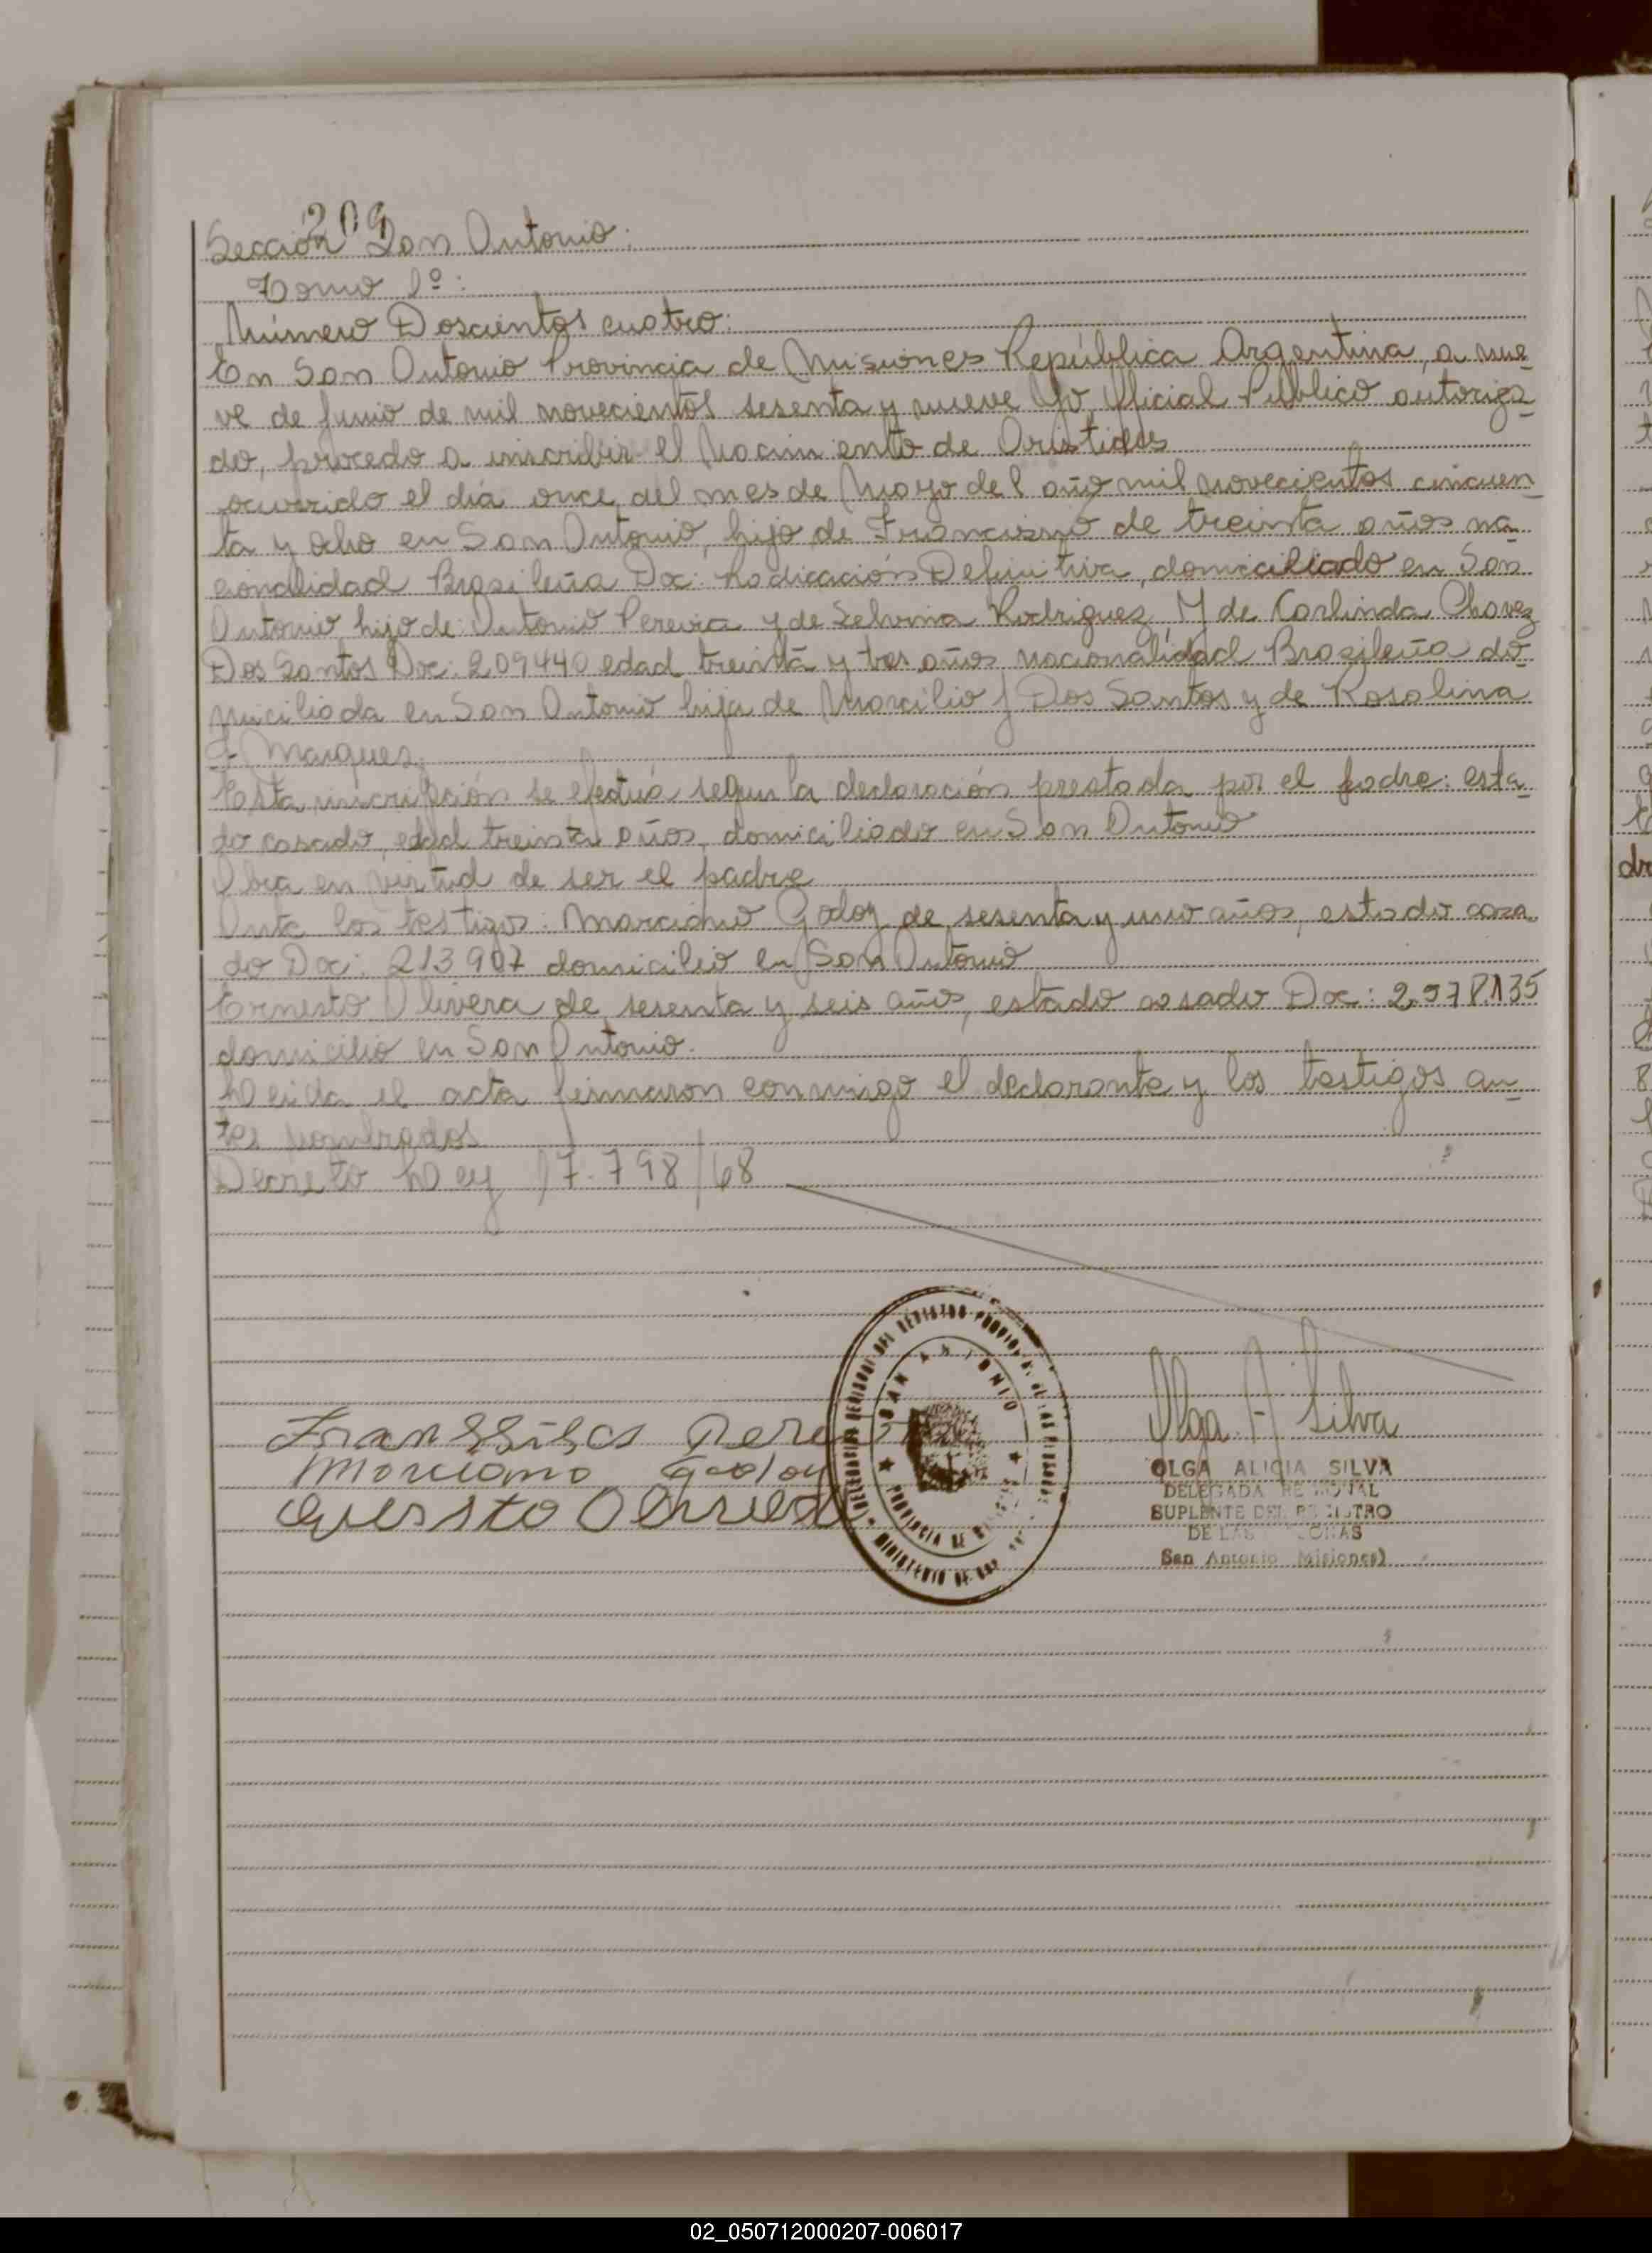 209
Sección San Antonio:
Tomo 1º:
Número Doscientos cuatro:
En San Antonio Provincia de Misiones República Argentina, a nue-
ve de Junio de mil novecientos sesenta y nueve Yo, Oficial Público autoriza-
do, procedo a inscribir el Nacimiento de Aristides
ocurrido el día once del mes de Mayo del año mil novecientos cincuen-
ta y ocho en San Antonio, hijo de Francisco de treinta años na-
cionalidad Brasileña Doc: Radicación Definitiva, domiciliado en San
Antonio, hijo de: Antonio Pereira y de Selvina Rodriguez Y de Carlinda Chavez
Dos Santos Doc: 209440 edad treinta y tres años nacionalidad Brasileña do-
miciliada en San Antonio hija de Marcilio J Dos Santos y de Rosalina
Marques.
Esta inscripción se efectúa según la declaración prestada por el padre: esta-
do casado, edad treinta años, domiciliado en San Antonio
Obra en virtud de ser el padre
Ante los testigos: Marciano Godoy de sesenta y uno años, estado casa-
do Doc: 213907 domicilio en San Antonio
Ernesto Olivera de sesenta y seis años, estado casado Doc: 2.978.135
domicilio en San Antonio.
Leída el acta firmaron conmigo el declarante y los testigos an-
tes nombrados
Decreto Ley 17.798/68
Marciano Godoy
SAN ANTONIO
PROVINCIA DE
MINISTERIO DE
Olga A Silva
OLGA ALICIA SILVA
DELEGADA REGIONAL
SUPLENTE DEL REGISTRO
DE LAS PERSONAS
San Antonio Misiones)
02_050712000207-006017